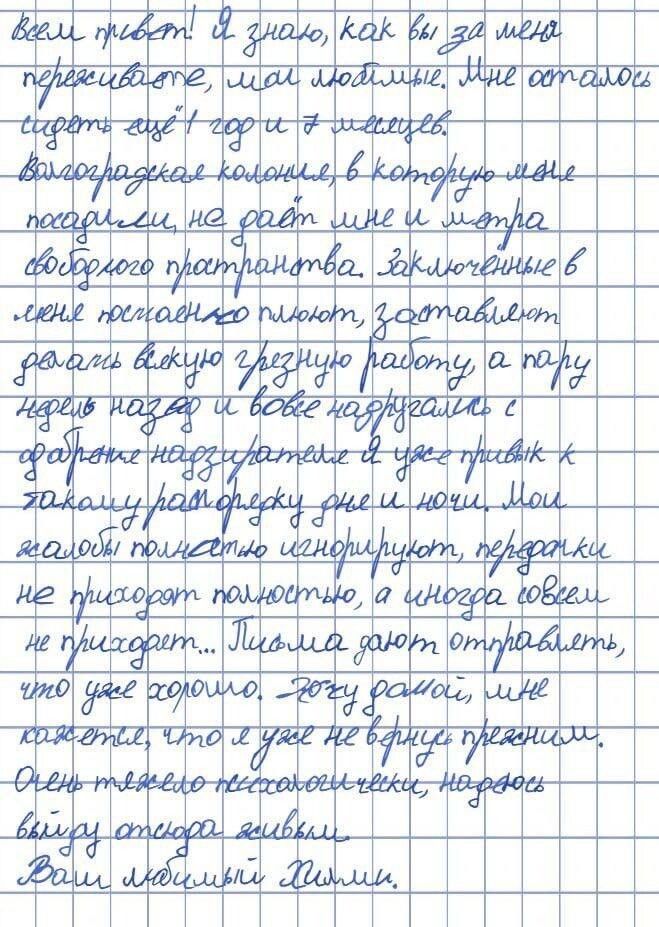 Всем привет! Я знаю, как вы за меня
переживаете, мои любимые. Мне осталось
сидеть ещё 1 год и 7 месяцев.
Волгоградская колония, в которую меня
посадили, не даёт мне и метра
свободного пространства. Заключённые в
меня постоянно плюют, заставляют
делать всякую грязную работу, а пару
недель назад и вовсе надругались с
одабрения надзирателя Я уже привык к
такому распорядку дня и ночи. Мои
жалобы полностью игнорируют, передачки
не приходят полностью, а иногда совсем
не приходят... Письма дают отправлять,
что уже хорошо. Хочу домой, мне
кажется, что я уже не вернусь прежним.
Очень тяжело психологически, надеюсь
выйду отсюда живым.
Ваш любимый Хилми.